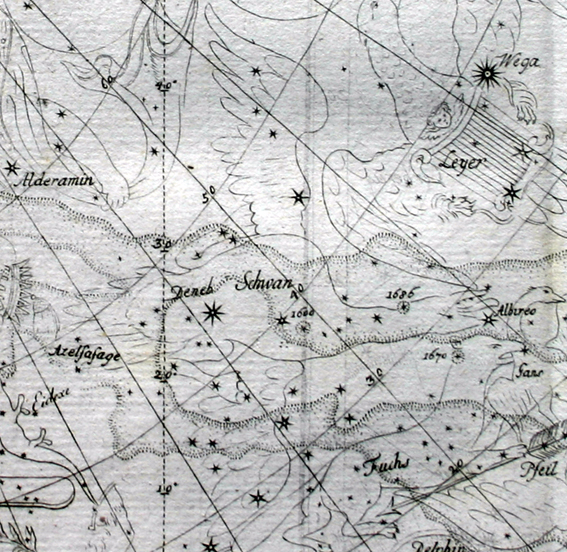 Wega
60
40
Leyer
Alderamin
50
30
Schwan
Deneb
40
1686
1600
Albireo
Azelfafage
1670
Gans
20
30
Eidexe
Fuchs
20
Pfeil
10
Delphin